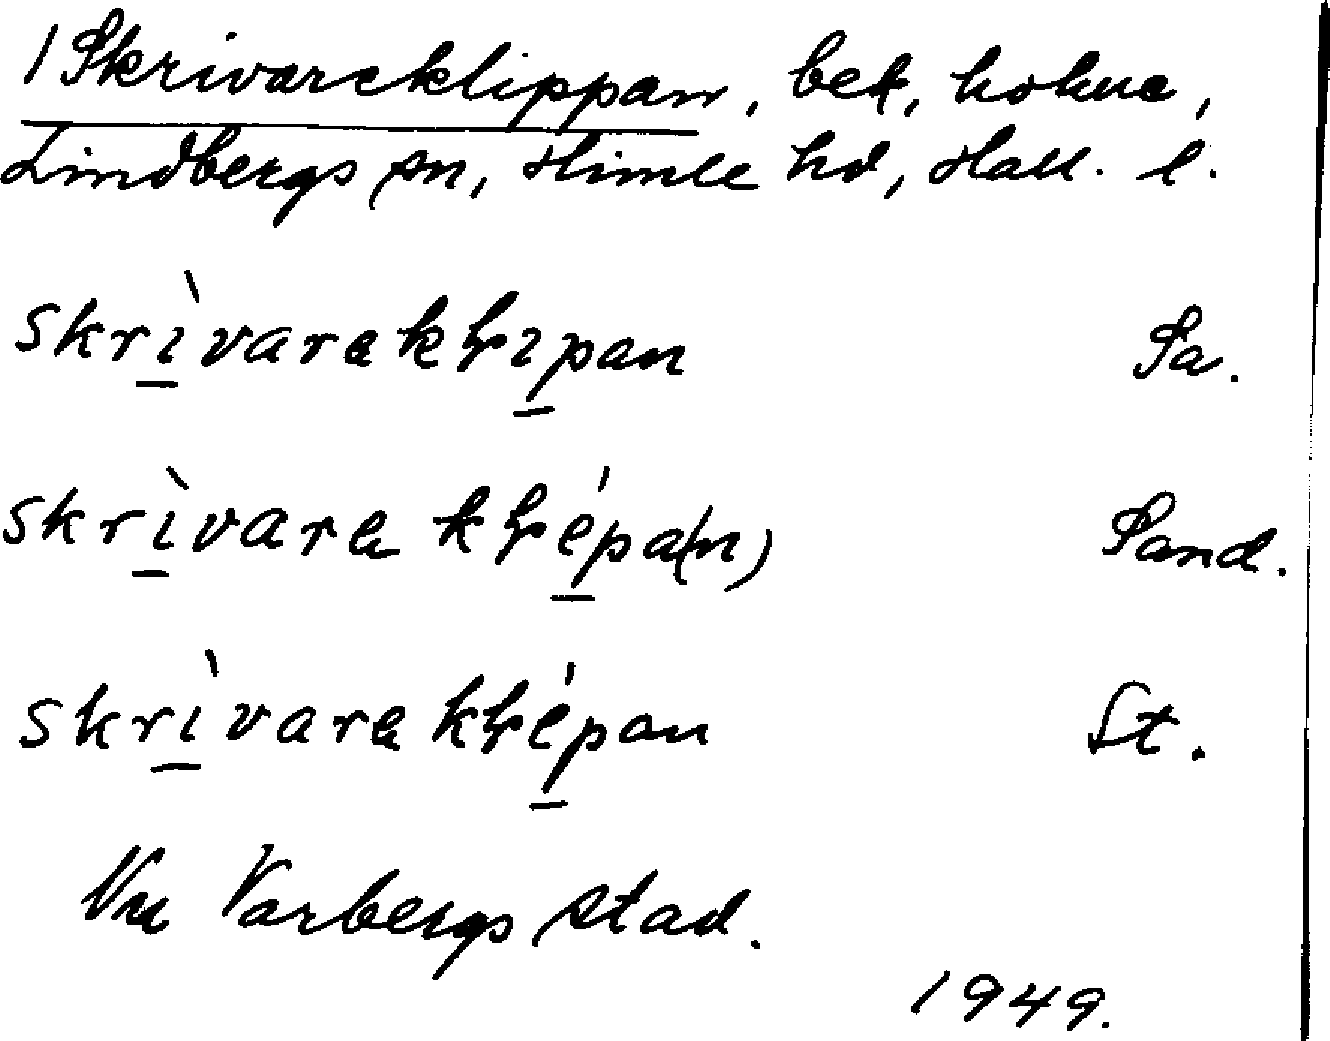 1 Skrivareklippan, bek. holme,
Lindbergs sn, Himle hd, Hall. l.
skrìvarekłıpan Sa.
skrìvare kłépa(n) Sand.
skrìvare kłépan St.
Nu Varbergs stad.
1949.